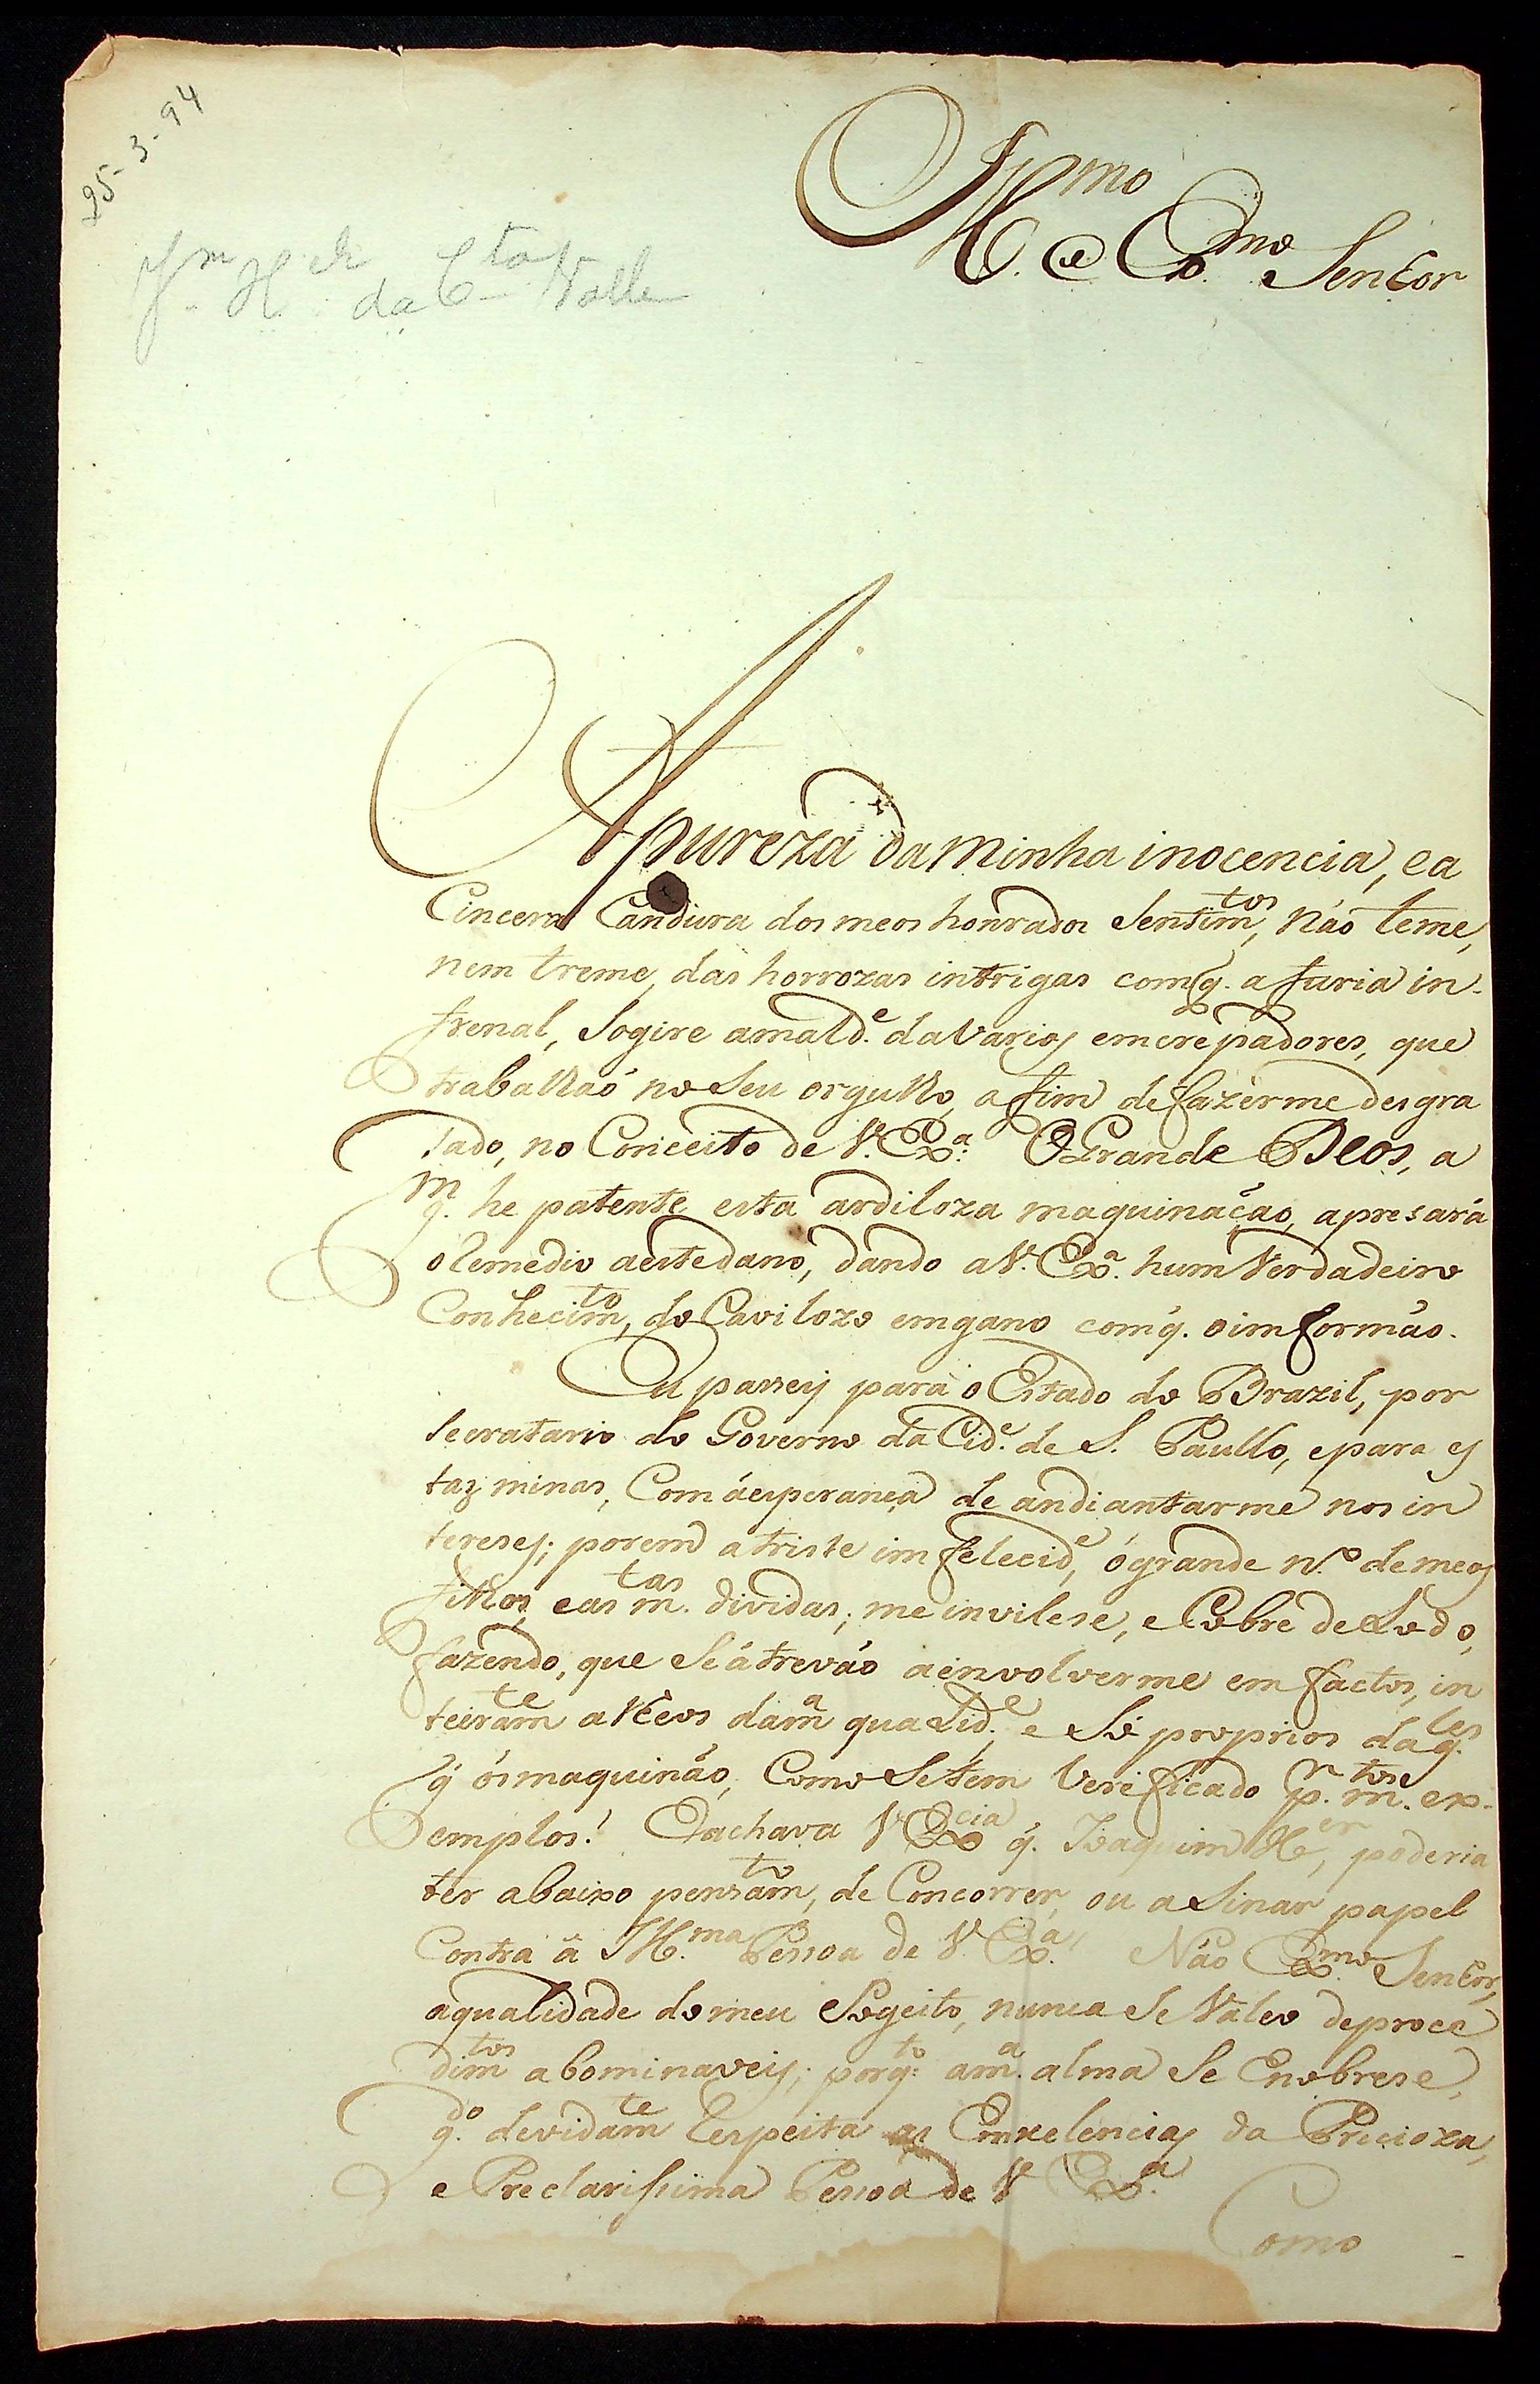 25-3-94
Jm H.er da Cta Valle
Illmo
e Exmo Senhor
A pureza da minha inocencia, e a
Cincera Candura dos meos honrados Sentimtos, não teme,
nem treme, das horrozas intrigas com q. a furia in-
frenal, Sogire a mald.e da Varios emcrepadores, que
trabalhaõ no Seu orgulho, a fim de fazerme desgra
sado, no Conceito de V. Ex.a O Grande Deos, a
q.m he patente esta ardiloza maquinação, apresará
o Remedio a este dano, dando a V. Ex.a hum Verdadeiro
Conhecimto, do Cavilozo emgano com q. o imformão.
Eu passey para o Estado do Brazil, por
Secratario do Governo da Cid.e de S. Paullo, e para es
tas minas, Com á esperança de andiantarme nos in
tereses; porem a triste imfelecid.e, ó grande n.o de meos
filhos, e as m.tas dividas; me invilese, e Cobre de Lodo,
fazendo, que Se á trevão a involverme em factos, in
teiramte alheos da m.a qualid.e, e Só proprios daq.les
q ós maquinão, Como Se tem Verificado p.r m.tos ex-
emplos! E achava V Ex.cia q. Joaquim H.er, poderia
ter abaixo pensamto, de Concorrer, ou a Sinar papel
Contra â Ill.ma Pessoa de V. Ex.a! Não Ex.mo Senhor,
a qualidade do meu Sogeito, nunca Se Valeo de proce
dimtos abominaveis; porq.to a m.a alma Se Enobrese,
q.do devidamte Respeita as Emxelencias da Precioza,
e Preclarissima Pessoa de V Ex.a
Como